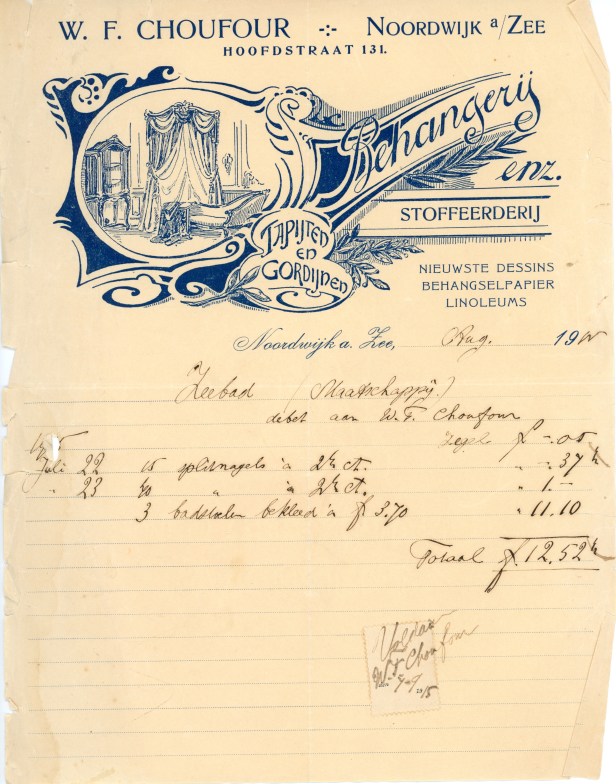 W. F. CHOUFOUR -:- NOORDWIJK a/ZEE
HOOFDSTRAAT 131.
Behangerij
enz.
STOFFEERDERIJ
TAPIJTEN
EN
GORDIJNEN
NIEUWSTE DESSINS
BEHANGSELPAPIER
LINOLEUMS
Noordwijk a. Zee, Aug. 19
Zeebad (Maatschappij.)
debet aan W. F. Choufour
Zegel f -.05
Juli 22 15 splitnagels à 2½ ct. " -.37½
" 23 40 " à 2½ ct. " 1.-
3 badstoelen bekleed à f 3.70 " 11.10
Totaal f. 12.52½
Voldaan
W. F. Choufour